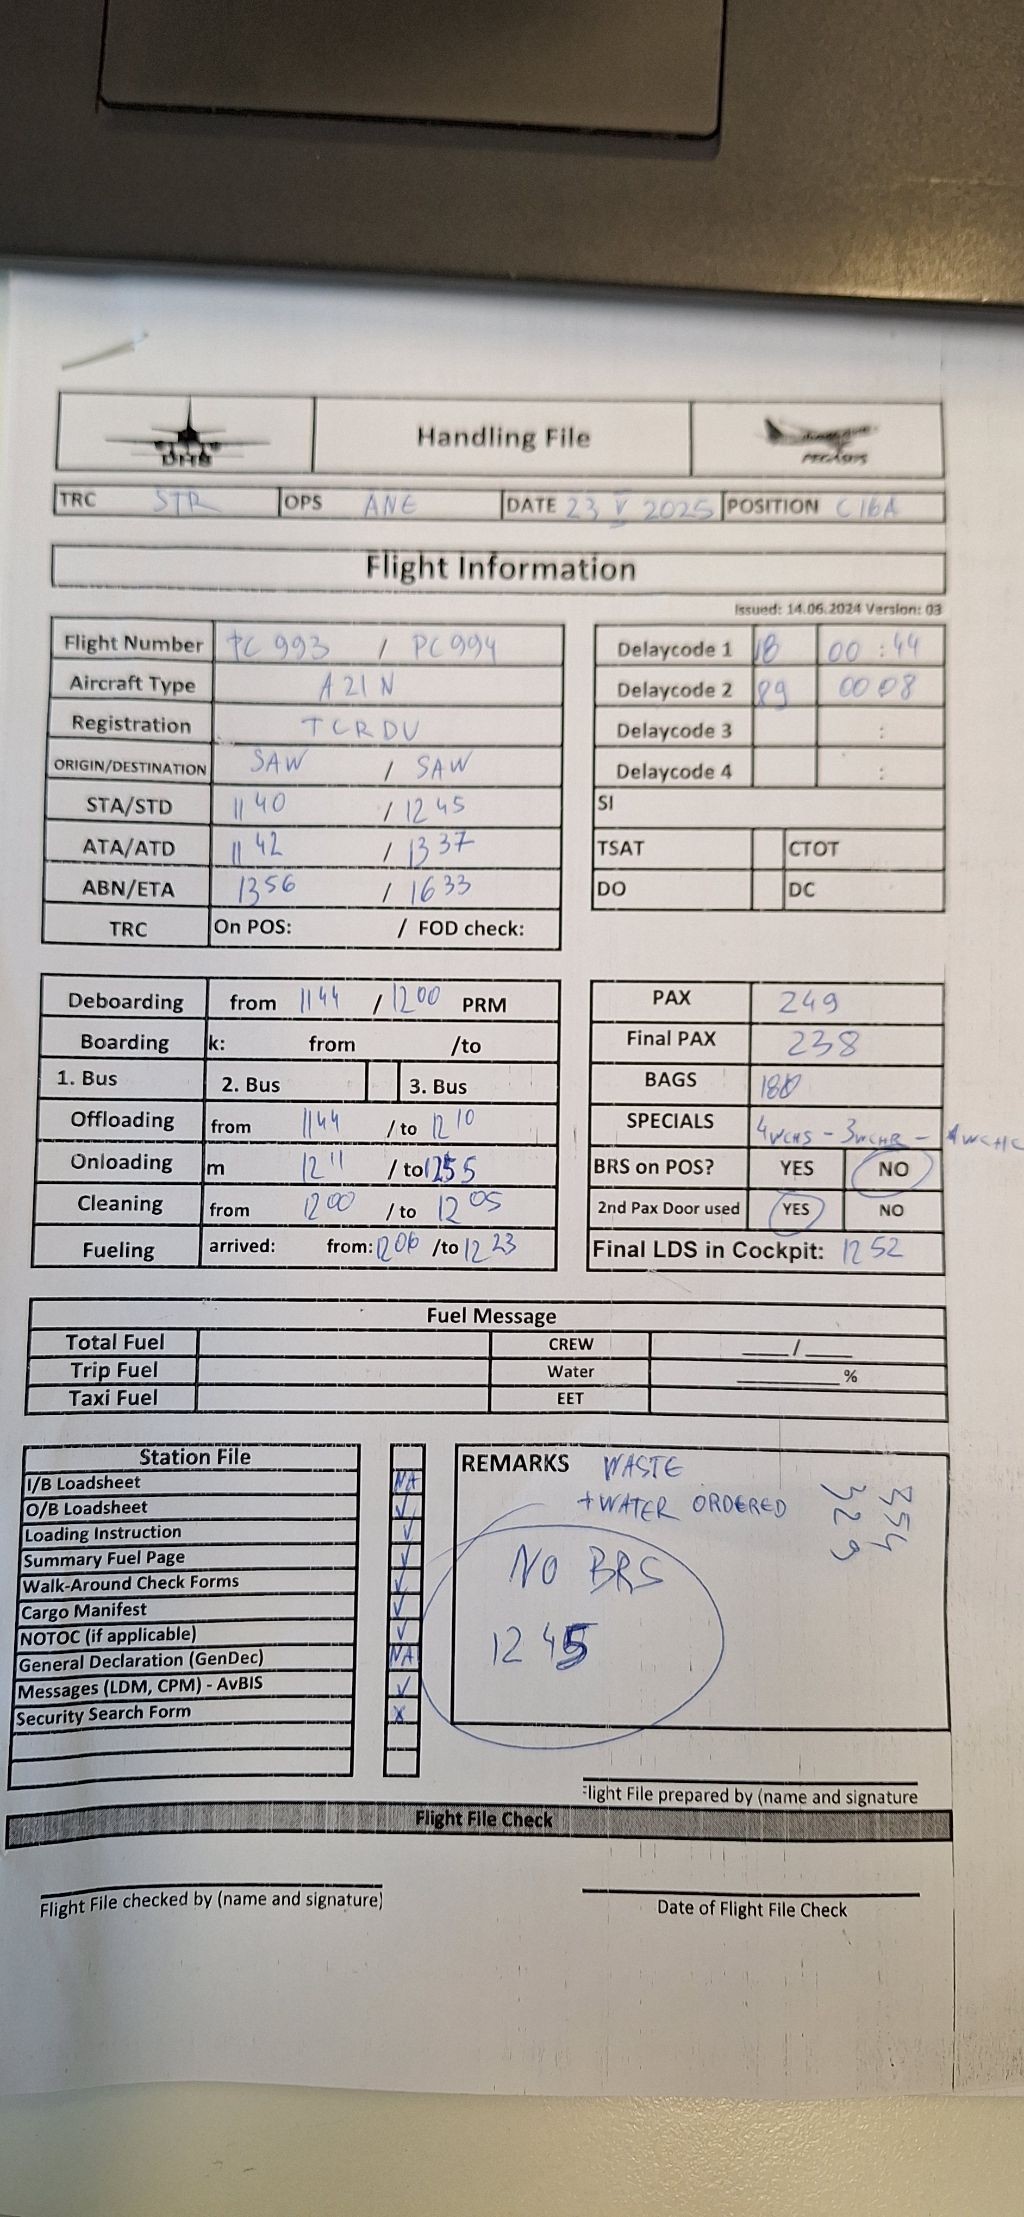 DHS
Handling File
PEGASUS
TRC STR OPS ANE DATE 23 V 2025 POSITION C16A
Flight Information
Issued: 14.06.2024 Version: 03
Flight Number PC 993 / PC 994
Aircraft Type A21N
Registration TCRDU
ORIGIN/DESTINATION SAW / SAW
STA/STD 1140 / 1245
ATA/ATD 1142 / 1337
ABN/ETA 1356 / 1633
TRC On POS: / FOD check:
Delaycode 1 18 00:44
Delaycode 2 89 00 08
Delaycode 3 :
Delaycode 4 :
SI
TSAT CTOT
DO DC
Deboarding from 1144 / 1200 PRM
Boarding k: from /to
1. Bus 2. Bus 3. Bus
Offloading from 1144 / to 1210
Onloading m 1211 / to 1255
Cleaning from 1200 / to 1205
Fueling arrived: from: 1206 /to 1223
PAX 249
Final PAX 238
BAGS 180
SPECIALS 4WCHS - 3WCHR - 1WCHC
BRS on POS? YES NO
2nd Pax Door used YES NO
Final LDS in Cockpit: 1252
Fuel Message
Total Fuel CREW ___/___
Trip Fuel Water ________%
Taxi Fuel EET
Station File
I/B Loadsheet NA
O/B Loadsheet ✓
Loading Instruction ✓
Summary Fuel Page ✓
Walk-Around Check Forms ✓
Cargo Manifest ✓
NOTOC (if applicable) ✓
General Declaration (GenDec) NA
Messages (LDM, CPM) - AvBIS ✓
Security Search Form x
REMARKS WASTE
+WATER ORDERED
354
329
NO BRS
1245
Flight File prepared by (name and signature
Flight File Check
Flight File checked by (name and signature)
Date of Flight File Check